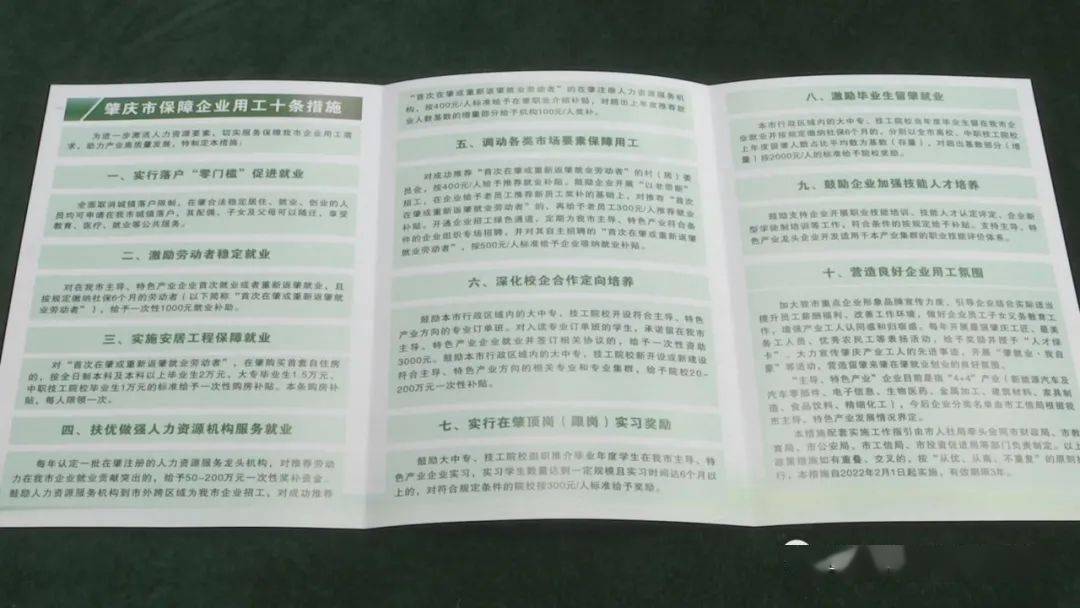 肇庆市保障企业用工十条措施
为进一步激活人力资源要素，切实服务保障我市企业用工需
求，助力产业高质量发展，特制定本措施：
一、实行落户“零门槛”促进就业
全面取消城镇落户限制，在肇合法稳定居住、就业、创业的人
员均可申请在我市城镇落户，其配偶、子女及父母可以随迁，享受
教育、医疗、就业等公共服务。
二、激励劳动者稳定就业
对在我市主导、特色产业企业首次就业或者重新返肇就业，且
按规定缴纳社保6个月的劳动者（以下简称“首次在肇或重新返肇就
业劳动者”），给予一次性1000元就业补助。
三、实施安居工程保障就业
对“首次在肇或重新返肇就业劳动者”，在肇购买首套自住房
的，按全日制本科及本科以上毕业生2万元、大专毕业生1.5万元、
中职技工院校毕业生1万元的标准给予一次性购房补贴。本条购房补
贴，每人限领一次。
四、扶优做强人力资源机构服务就业
每年认定一批在肇注册的人力资源服务龙头机构，对推荐劳动
力在我市企业就业贡献突出的，给予50-200万元一次性奖补资金。
鼓励人力资源服务机构到市外跨区域为我市企业招工，对成功推荐
“首次在肇或重新返肇就业劳动者”的在肇注册人力资源服务机
构，按400元/人标准给予在肇职业介绍补贴，对超出上年度推荐就
业人数基数的增量部分给予机构100元/人奖补。
五、调动各类市场要素保障用工
对成功推荐“首次在肇或重新返肇就业劳动者”的村（居）委
员会，按400元/人给予推荐就业补贴。鼓励企业开展“以老带新”
招工，在企业给予老员工推荐新员工奖补的基础上，对推荐“首次
在肇或重新返肇就业劳动者”的，再给予老员工300元/人推荐就业
补贴。开通企业招工绿色通道，定期为我市主导、特色产业符合条
件的企业组织专场招聘，并对其自主招聘的“首次在肇或重新返肇
就业劳动者”，按500元/人标准给予企业吸纳就业补贴。
六、深化校企合作定向培养
鼓励本市行政区域内的大中专、技工院校开设符合主导、特色
产业方向的专业订单班。对入读专业订单班的学生，承诺留在我市
主导、特色产业企业就业并签订相关协议的，给予一次性资助
3000元。鼓励本市行政区域内的大中专、技工院校新开设或新建设
符合主导、特色产业方向的相关专业和专业集群，给予院校20-
200万元一次性补贴。
七、实行在肇顶岗（跟岗）实习奖励
鼓励大中专、技工院校组织推介毕业年度学生在我市主导、特
色产业企业实习，实习学生数量达到一定规模且实习时间达6个月以
上的，对符合规定条件的院校按300元/人标准给予奖励。
八、激励毕业生留肇就业
本市行政区域内的大中专、技工院校当年度毕业生留在我市企
业就业并按规定缴纳社保6个月的，分别以全市高校、中职技工院校
上年度留肇人数占比平均数为基数（存量），对超出基数部分（增
量）按2000元/人的标准给予院校奖励。
九、鼓励企业加强技能人才培养
鼓励支持企业开展职业技能培训、技能人才认定评定、企业新
型学徒制培训等工作，符合条件的按规定给予补贴。支持主导、特
色产业龙头企业开发适用于本产业集群的职业技能评价体系。
十、营造良好企业用工氛围
加大我市重点企业形象品牌宣传力度，引导企业结合实际适当
提升员工薪酬福利、改善工作环境，做好企业员工子女义务教育工
作，增强产业工人认同感和归宿感。每年开展最强肇庆工匠、最美
务工人员、优秀农民工等表扬活动，给予奖励并授予“人才绿
卡”。大力宣传肇庆产业工人的先进事迹，开展“肇就业·我自
豪”等活动，营造留肇来肇在肇就业创业的良好氛围。
“主导、特色产业”企业目前是指“4+4”产业（新能源汽车及
汽车零部件、电子信息、生物医药、金属加工、建筑材料、家具制
造、食品饮料、精细化工），今后企业分类名单由市工信局根据我
市主导、特色产业发展情况界定。
本措施配套实施工作指引由市人社局牵头会同市财政局、市教
育局、市公安局、市工信局、市投资促进局等部门负责制定。以上
政策措施如有重叠、交叉的，按“从优、从高、不重复”的原则执
行，本措施自2022年2月1日起实施，有效期限3年。